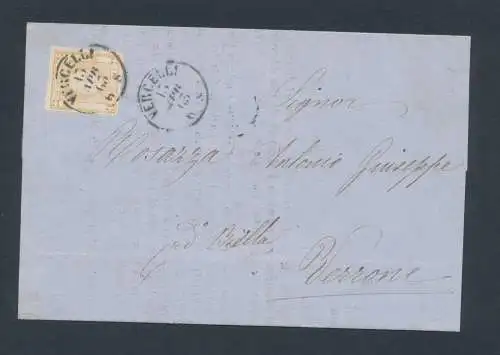 VERCELLI
13
APR
65
VERCELLI
13
APR
65
Signor
Mosazza Antonio Giuseppe
Biella
Verrone